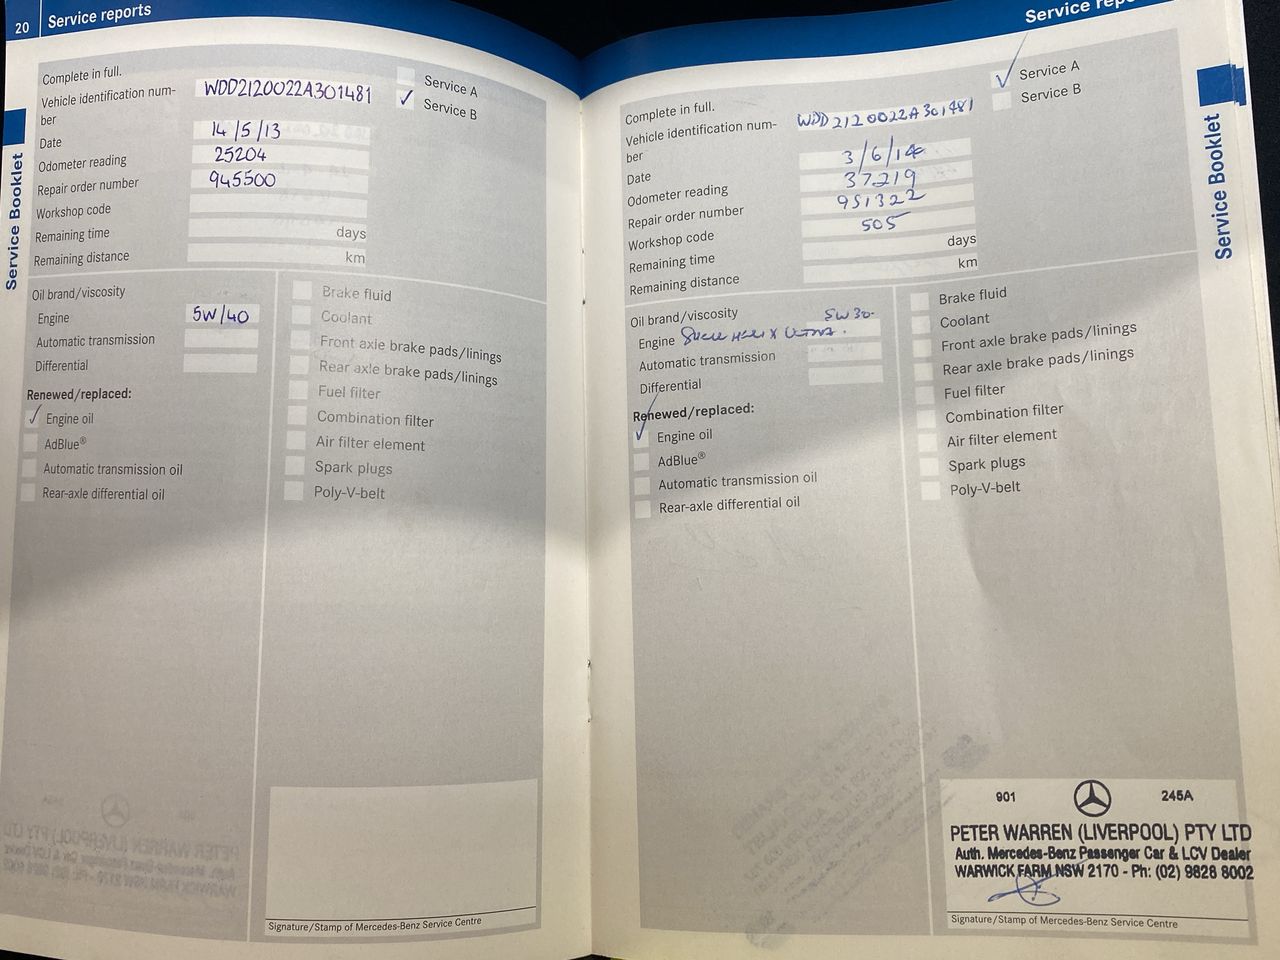 20 Service reports
Complete in full.
Vehicle identification num-
ber WDD2120022A301481
Service A
✓ Service B
Date 14/5/13
Odometer reading 25204
Repair order number 945500
Workshop code
Remaining time days
Remaining distance km
Oil brand/viscosity
Engine 5W/40
Automatic transmission
Differential
Renewed/replaced:
✓ Engine oil
AdBlue®
Automatic transmission oil
Rear-axle differential oil
Brake fluid
Coolant
Front axle brake pads/linings
Rear axle brake pads/linings
Fuel filter
Combination filter
Air filter element
Spark plugs
Poly-V-belt
Signature/Stamp of Mercedes-Benz Service Centre
Service Booklet
Service
Complete in full.
Vehicle identification num-
ber WDD2120022A301481
✓ Service A
Service B
Date 3/6/14
Odometer reading 37219
Repair order number 951322
Workshop code 505
Remaining time days
Remaining distance km
Oil brand/viscosity 5W30-
Engine
Automatic transmission
Differential
Renewed/replaced:
✓ Engine oil
AdBlue®
Automatic transmission oil
Rear-axle differential oil
Brake fluid
Coolant
Front axle brake pads/linings
Rear axle brake pads/linings
Fuel filter
Combination filter
Air filter element
Spark plugs
Poly-V-belt
901 245A
PETER WARREN (LIVERPOOL) PTY LTD
Auth. Mercedes-Benz Passenger Car & LCV Dealer
WARWICK FARM NSW 2170 - Ph: (02) 9828 8002
Signature/Stamp of Mercedes-Benz Service Centre
Service Booklet